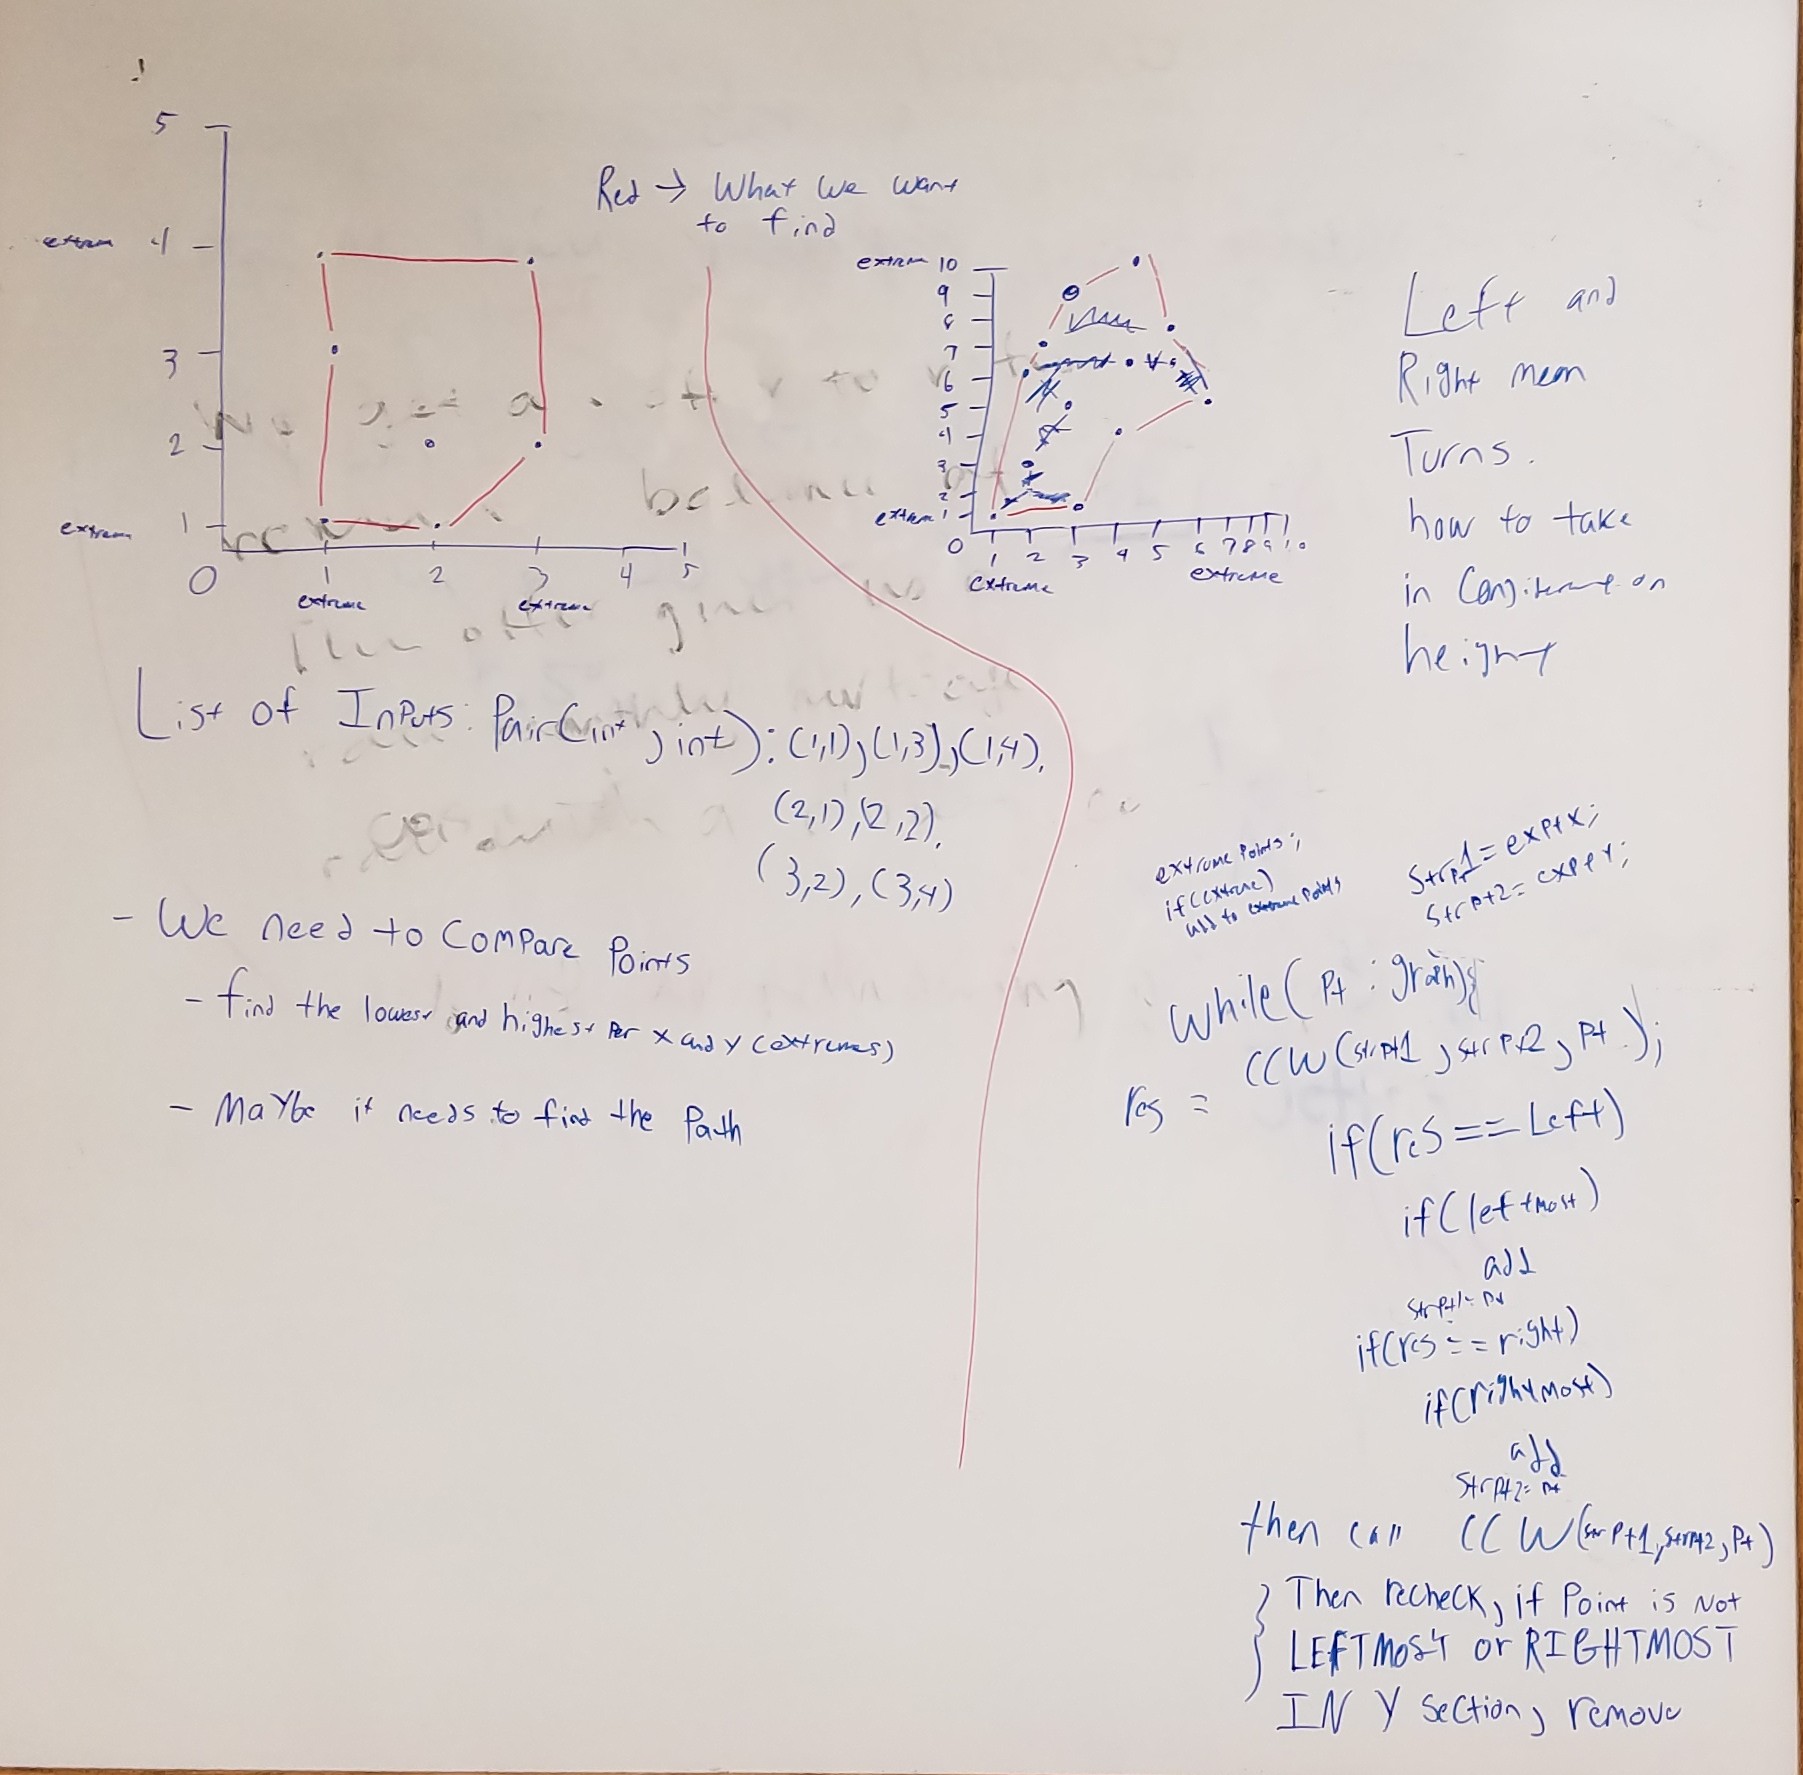 5
extrem 4
3
2
extrem 1
0 1 2 3 4 5
extreme extreme
Red → What we want
to find
extrem 10
9
8
7
6
5
4
3
2
extrem 1
0 1 2 3 4 5 6 7 8 9 10
extreme extreme
Left and
Right mean
Turns.
how to take
in
height
List of Inputs: Pair(int, int): (1,1), (1,3), (1,4),
(2,1), (2,2),
(3,2), (3,4)
- We need to Compare Points
- find the lowest and highest per x and y (extremes)
- Maybe it needs to find the Path
extreme points;
if(extreme)
add to extreme points
strpt1 = exptx;
strpt2 = expty;
while( Pt : graph){
res = CCW(strpt1, strpt2, pt);
if(res == Left)
if(leftmost)
add
strpt1 = pt
if(res == right)
if(rightmost)
add
strpt2 = pt
then call CCW(strpt1, strpt2, Pt)
} Then recheck, if Point is Not
LEFTMOST or RIGHTMOST
IN Y section, remove